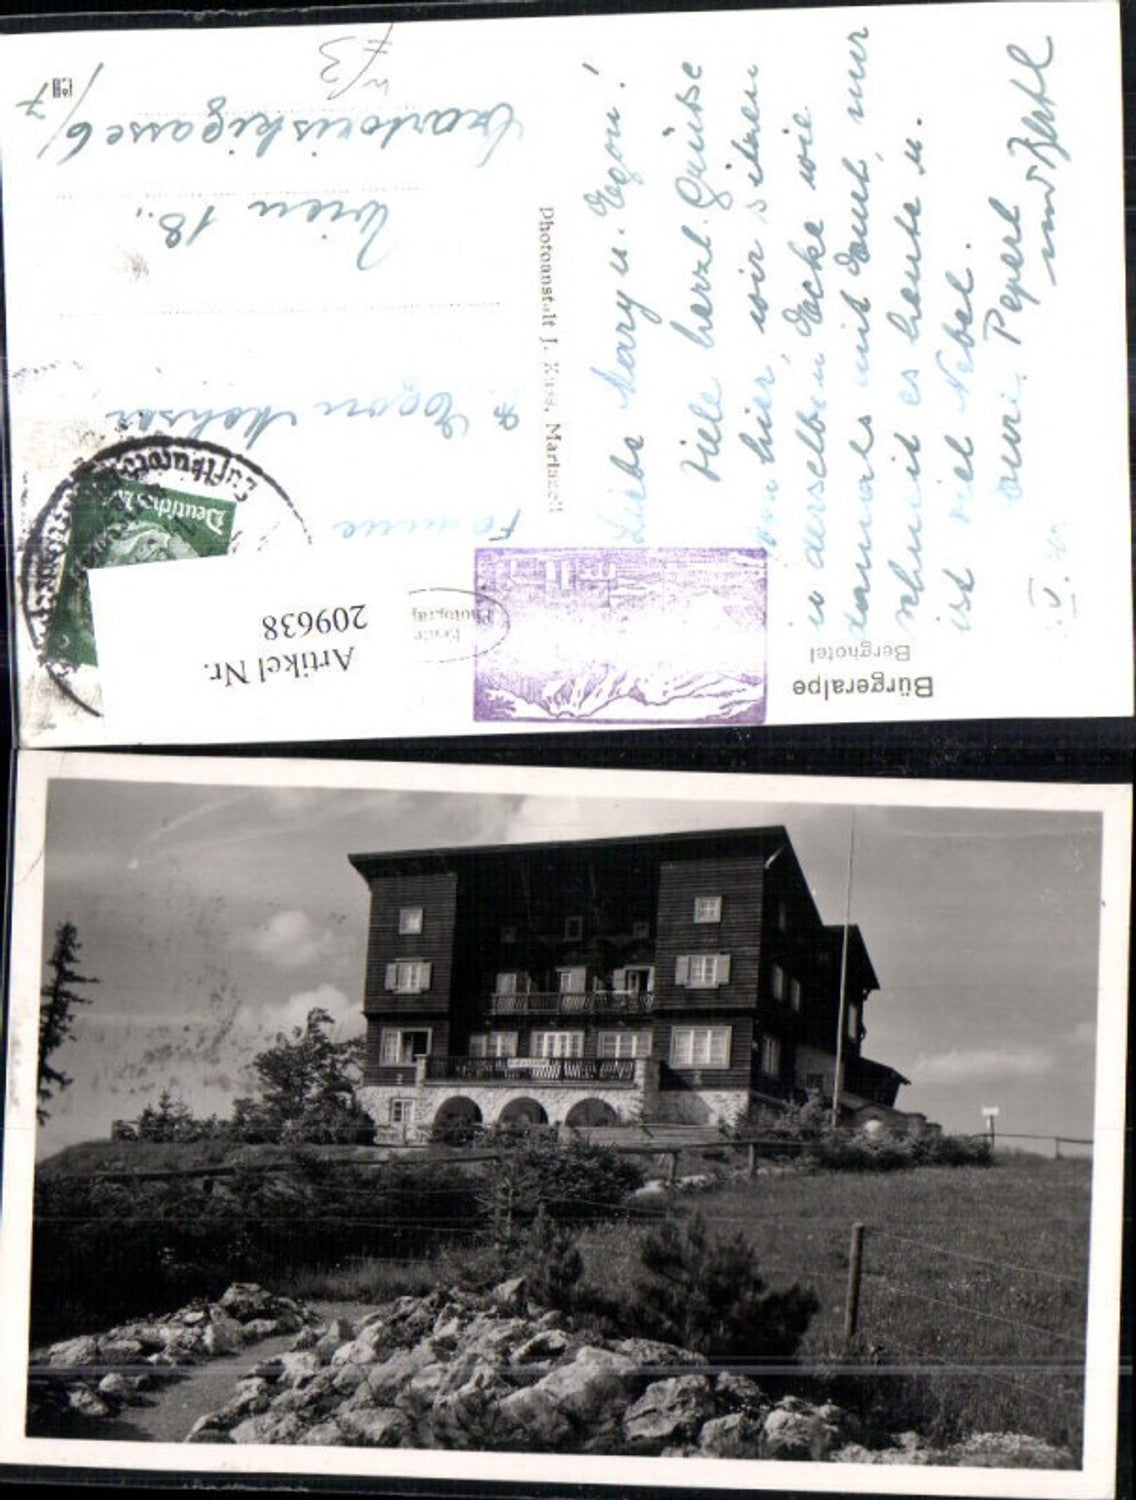 Bürgeralpe
Berghotel
Liebe Mary u. Egon!
Viele herzl. Grüsse
von hier, wir sitzen
in derselben Ecke wie
damals mit Euch, nur
schneit es heute u.
ist viel Nebel.
Pepert
und Bertl
Photoanstalt J. Kuss, Mariazell
Echte
Photograph
Deutsches
Luftkurort
Familie
Egon
Wien 18.,
Czartoriskigasse 6/7
Artikel Nr.
209638